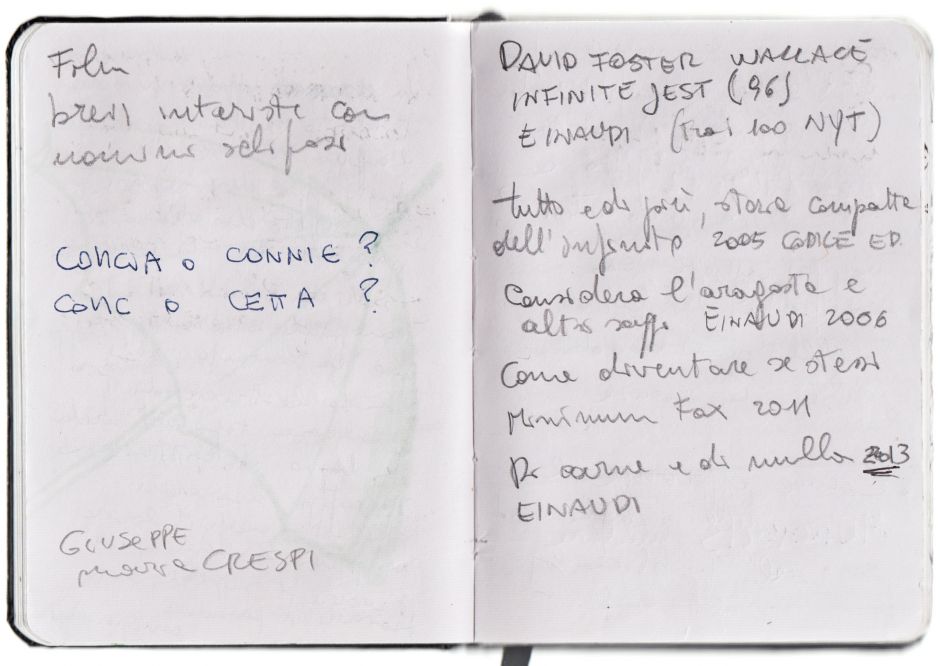 Film
brevi interviste con
uomini schifosi
CONCIA o CONNIE ?
CONC o CETTA ?
GIUSEPPE
maria CRESPI
DAVID FOSTER WALLACE
INFINITE JEST (96)
EINAUDI (tra i 100 NYT)
tutto e di più, storia compatta
dell'infinito 2005 CODICE ED.
Considera l'aragosta e
altri saggi EINAUDI 2006
Come diventare se stessi
Minimum Fax 2011
Di carne e di nulla 2013
EINAUDI